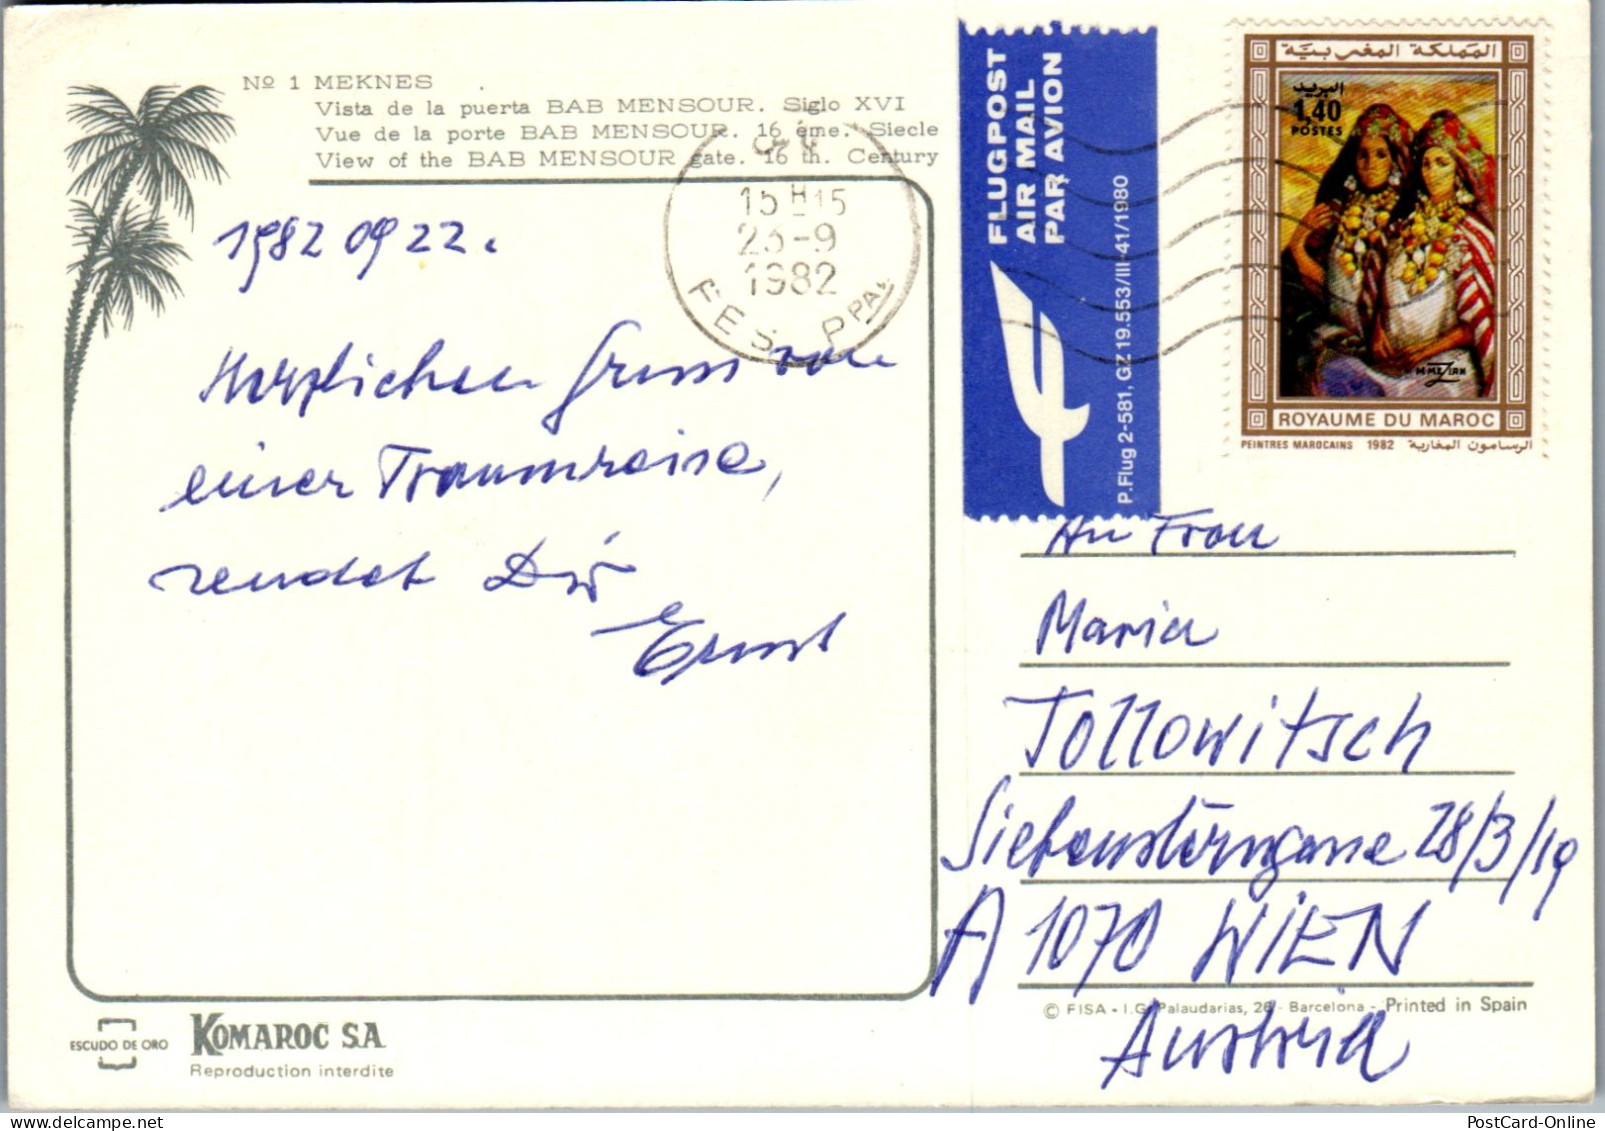 Nº 1 MEKNES
Vista de la puerta BAB MENSOUR. Siglo XVI
Vue de la porte BAB MENSOUR. 16 ème. Siecle
View of the BAB MENSOUR gate. 16 th. Century
1982 09 22.
Herzlichen Gruss von
einer Traumreise,
sendet Dir
Ernst
15 H 15
23-9
1982
FES PPAL
FLUGPOST
AIR MAIL
PAR AVION
P.Flug 2-581, GZ 19.553/III-41/1980
المملكة المغربية
البريد
1,40
POSTES
M·MEZIAN
ROYAUME DU MAROC
PEINTRES MAROCAINS 1982 الرسامون المغاربة
An Frau
Maria
Tollowitsch
Siebensterngasse 28/3/19
A 1070 WIEN
Austria
© FISA - I.G. Palaudarias, 26 - Barcelona - Printed in Spain
ESCUDO DE ORO
KOMAROC S.A.
Reproduction interdite
PostCard-Online